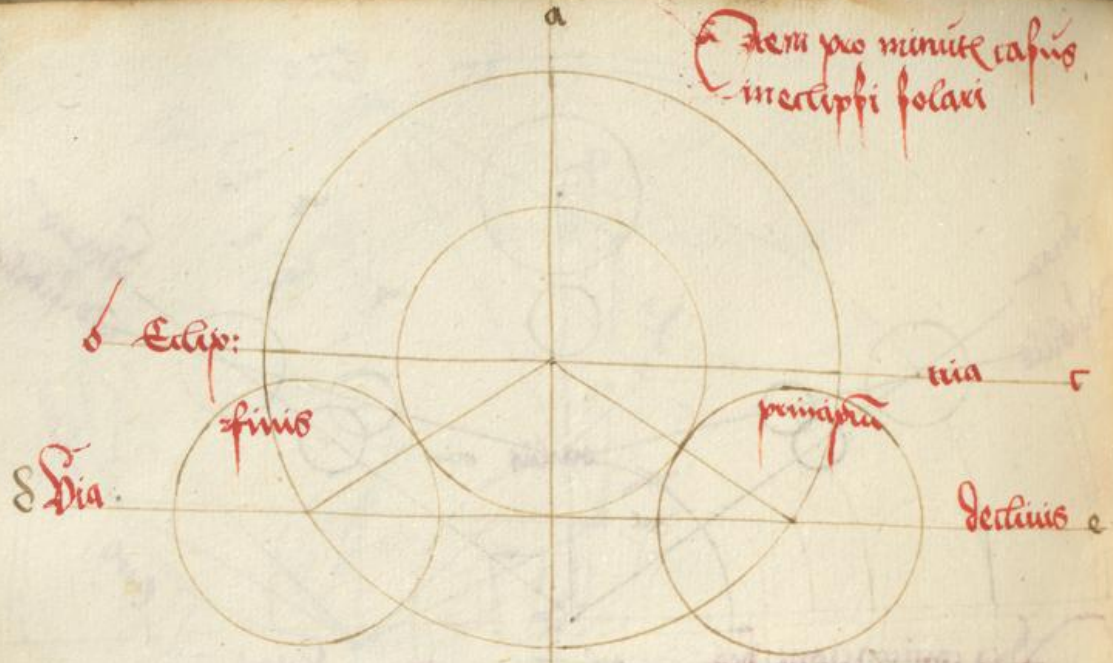 a
Item pro minutꝭ casus
in eclipsi solari
b Eclip: tica c
finis principiū
d Via declivis e